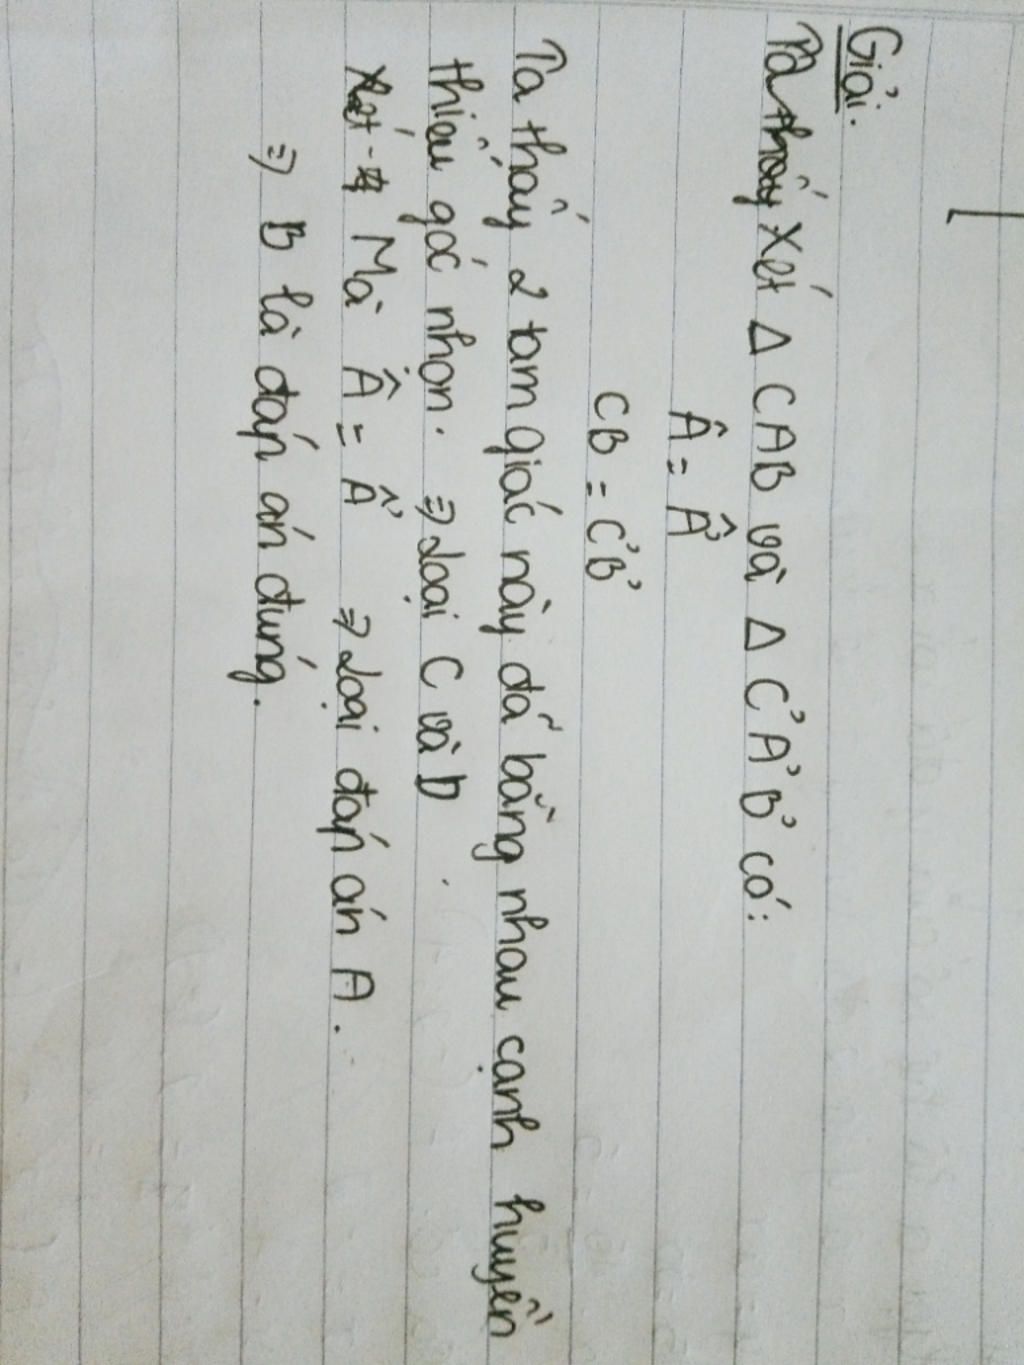 Giải.
Ta thấy Xét Δ CAB và Δ C'A'B' có:
Â = Â'
CB = C'B'
Ta thấy 2 tam giác này đã bằng nhau cạnh huyền
thiếu góc nhọn. ⇒ Loại C và D
Xét Mà Â = Â' ⇒ Loại đáp án A.
⇒ B là đáp án đúng.